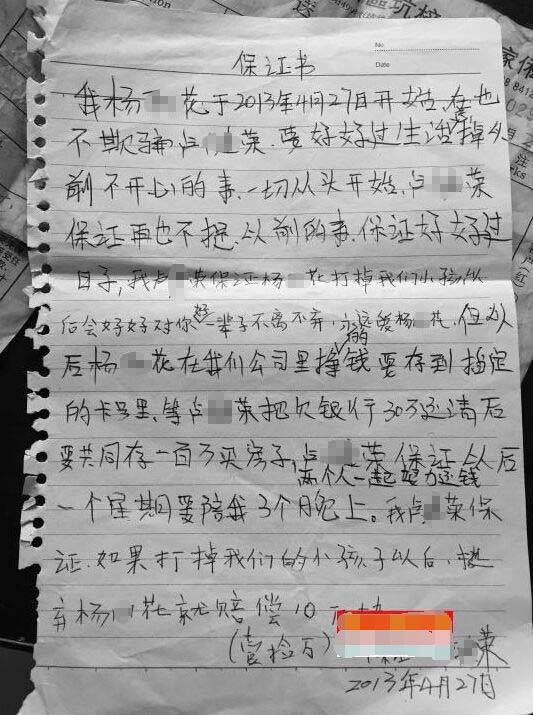 No
Date
保证书
我杨花于2013年4月27日开始,在也
不欺骗卢荣.要好好过生活掉以
前不开心的事.一切从头开始,卢荣
保证再也不提.从前的事.保证好好过
日子,我卢荣保证杨花打掉我们小孩以
后会好好对你好一辈子不离不弃,永远爱杨花.但以
后杨花在我们公司里挣的钱要存到指定
的卡号里,等卢荣把欠银行30万还清后
要共同存一百万买房子,卢荣保证从后
两个人一起努力还钱
一个星期要陪我3个晚上。我卢荣保
证.如果打掉我们的小孩子以后,抛
弃杨花就赔偿10万
(壹拾万) 荣
2013年4月27日